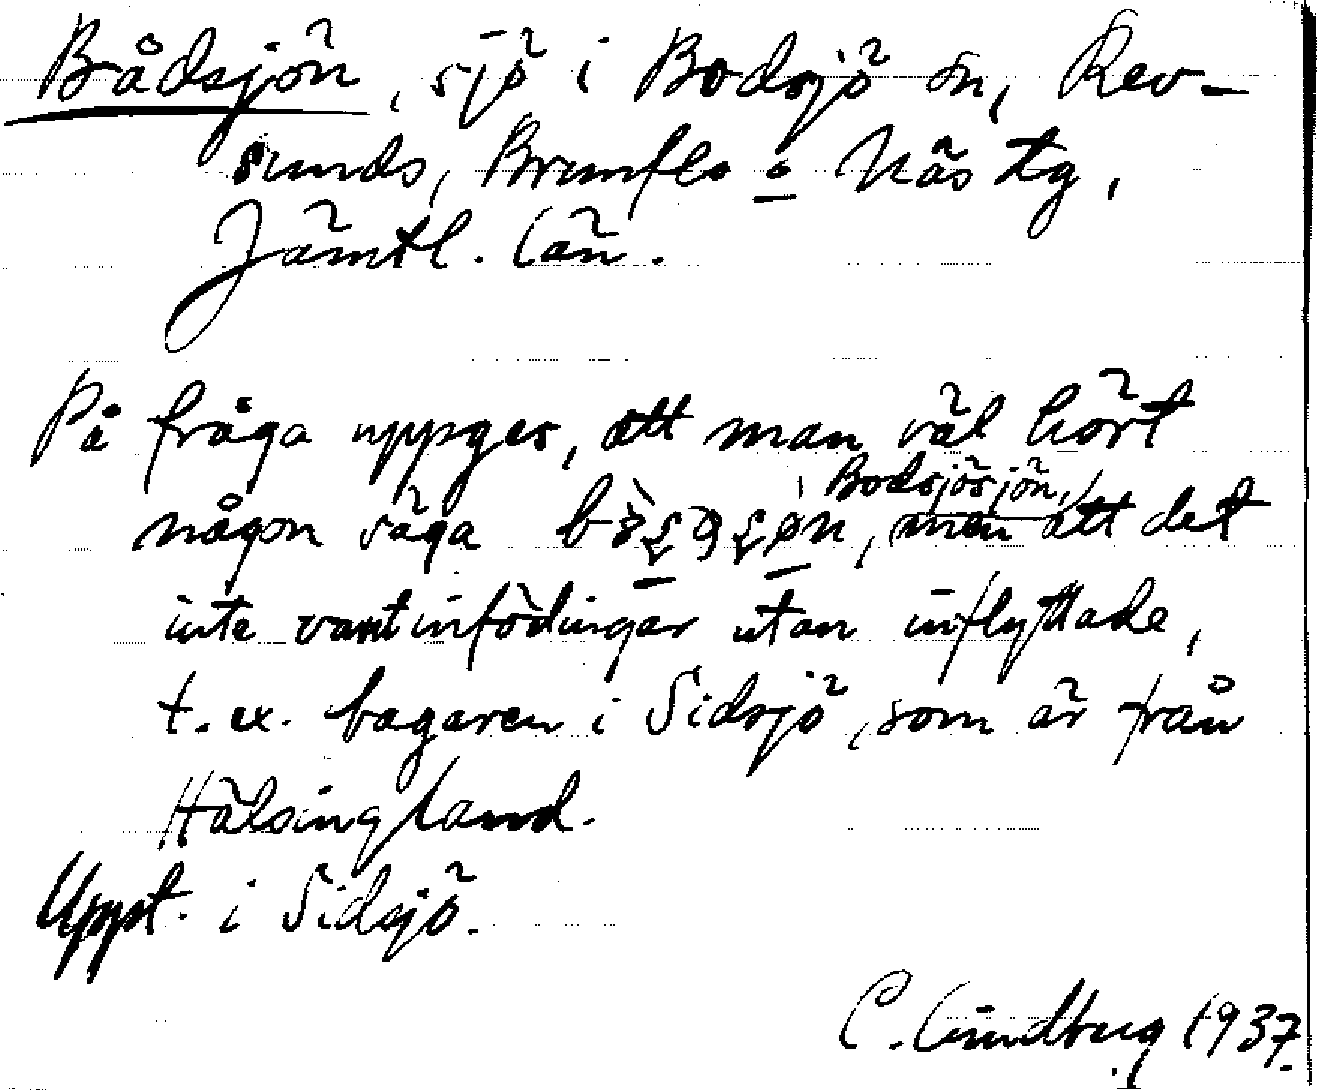 Bådsjön, sjö i Bodsjö sn, Rev-
sunds, Brunflo o Näs tg,
Jämtl. län.
På fråga uppges, att man väl hört
Bodsjösjön,
någon säga men att det
inte varit infödingar utan inflyttade,
t. ex. bagaren i Sidsjö, som är från
Hälsingland.
Uppt. i Sidsjö.
C. Lindberg 1937.